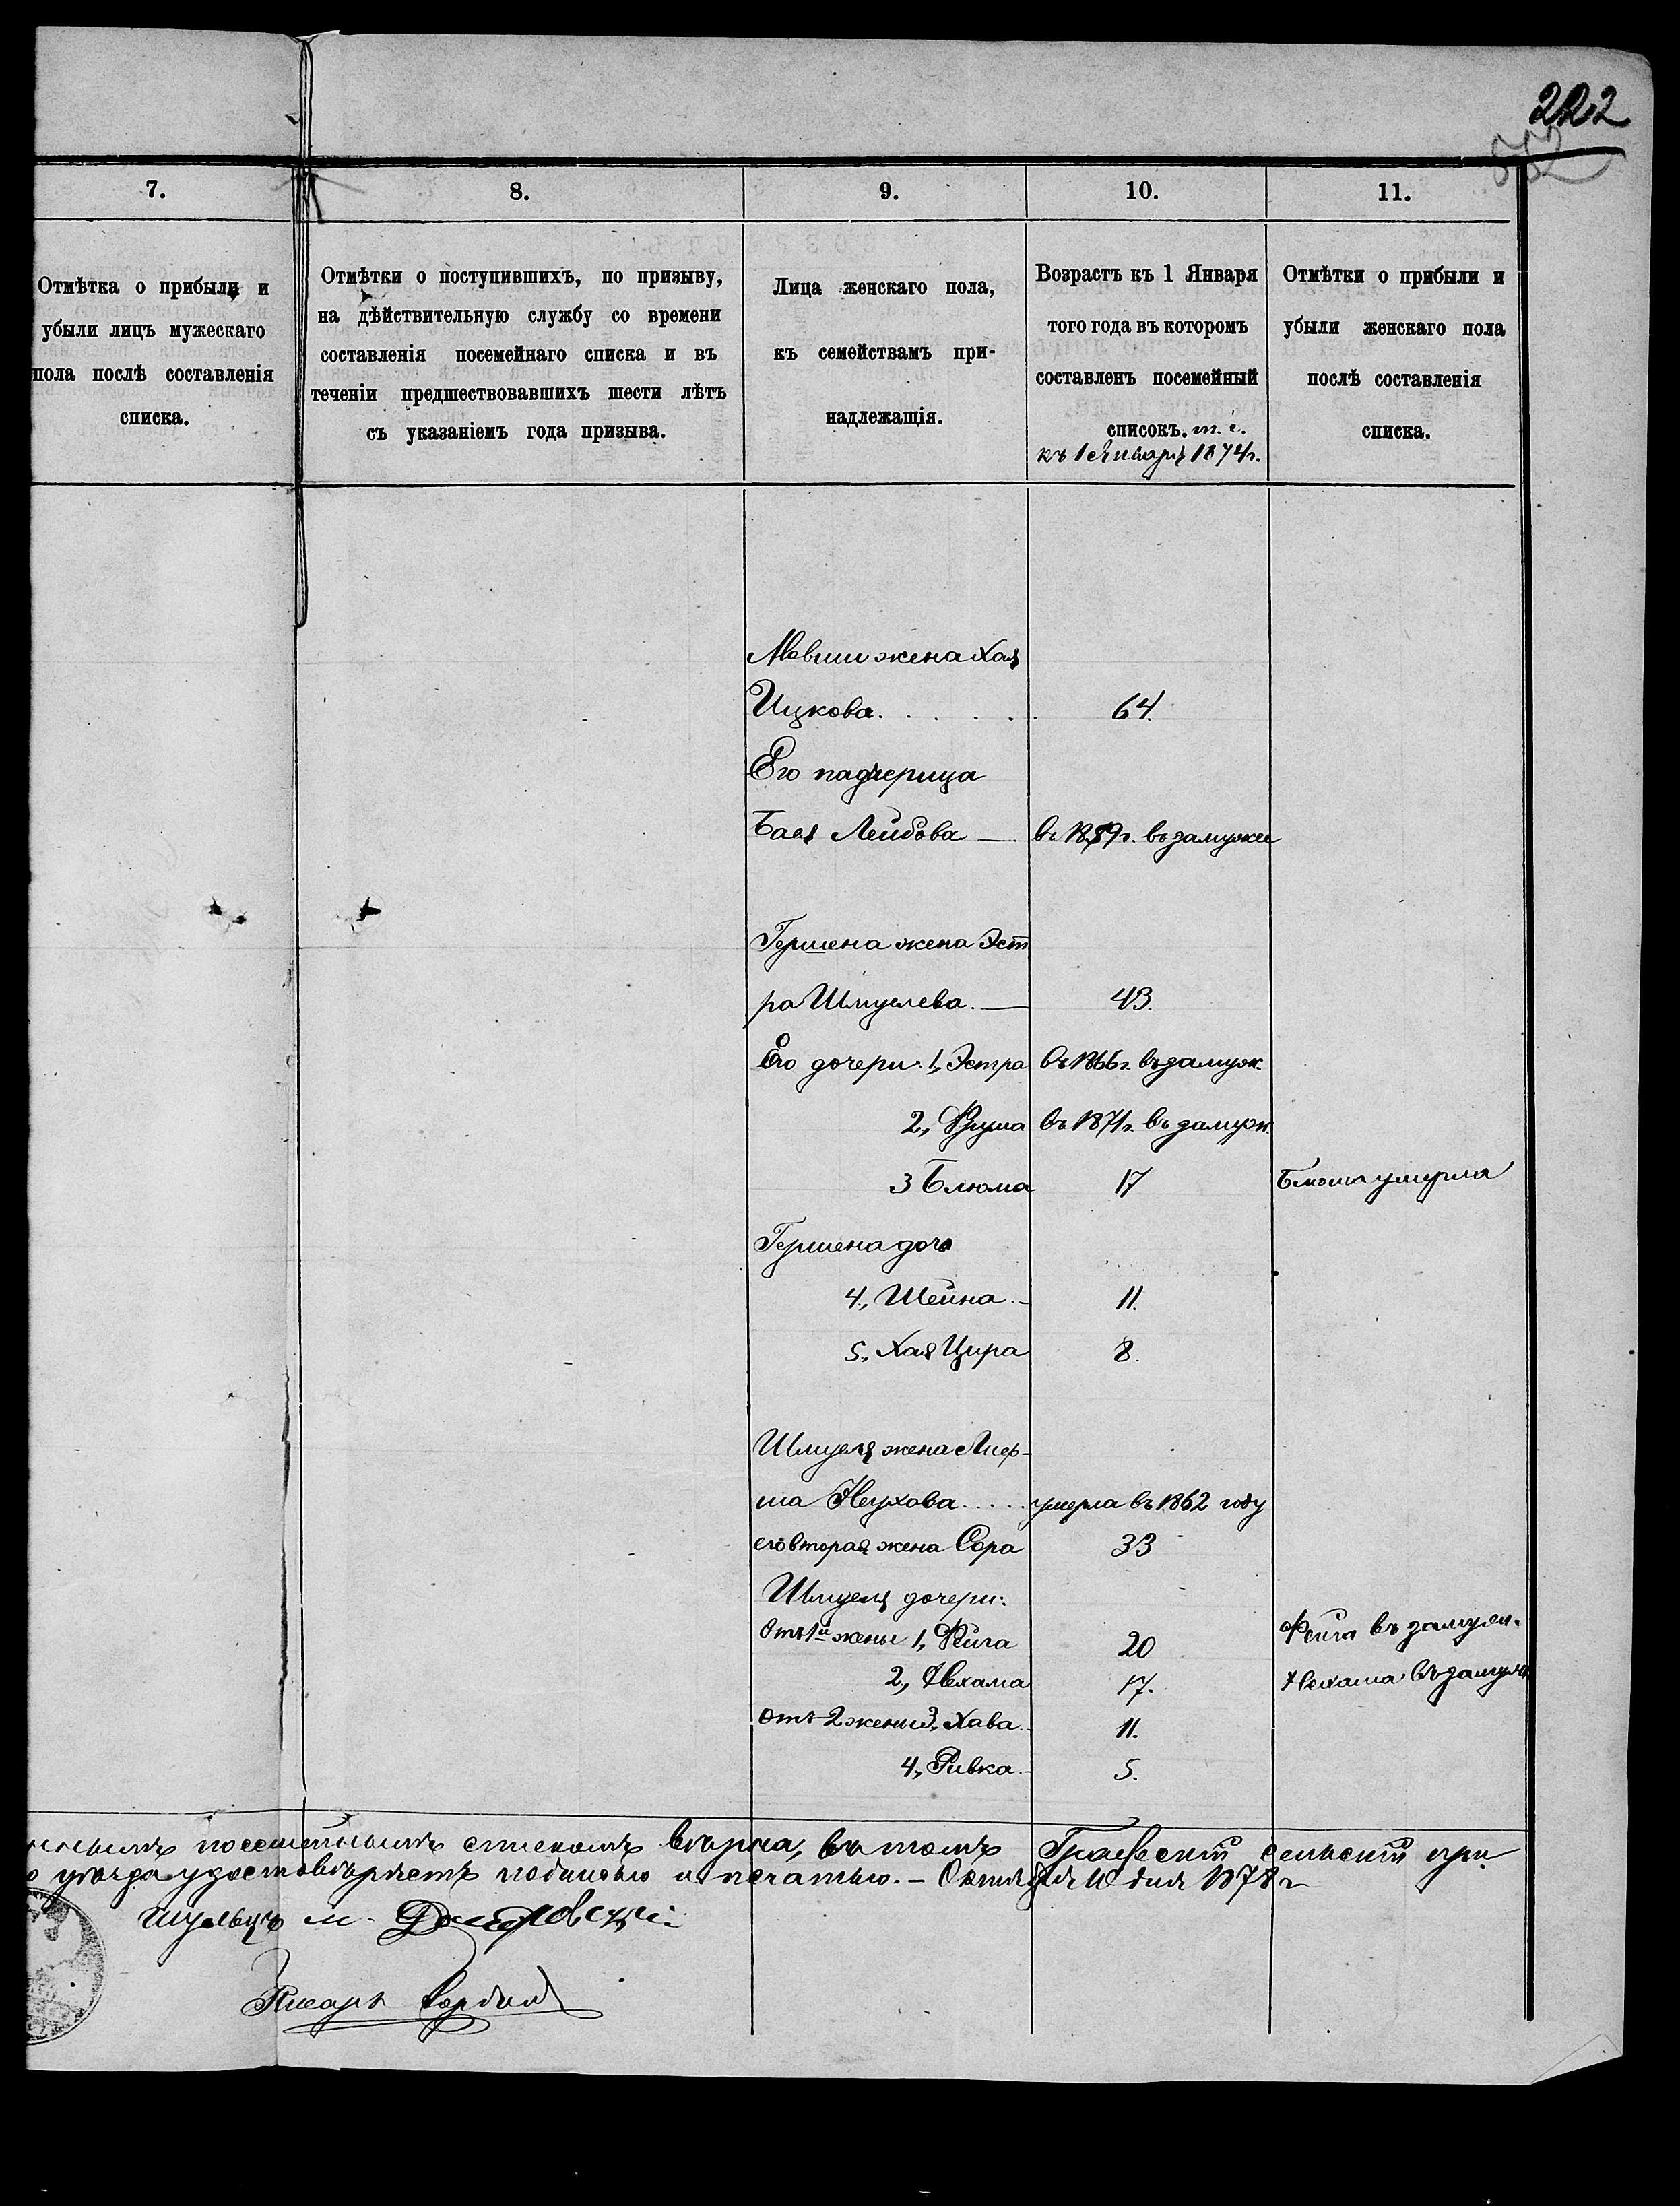 222
7.
8.
9.
10.
11.
Отмѣтка о прибыли и
убыли лицъ мужескаго
пола послѣ составленія
списка.
Отмѣтки о поступившихъ, по призыву,
на дѣйствительную службу со времени
составленія посемейнаго списка и въ
теченіи предшествовавшихъ шести лѣтъ
съ указаніемъ года призыва.
Лица женскаго пола,
къ семействамъ при-
надлежащія.
Возрастъ къ 1 Января
того года въ которомъ
составленъ посемейный
списокъ. т. е.
къ 1 Января 1874 г.
Отмѣтки о прибыли и
убыли женскаго пола
послѣ составленія
списка.
Мовши жена Хая
Ицкова. 64.
Его падчерица
Бася Лейбова — въ 1859 г. въ замужее
Гершена жена Эст
ра Шмуелева. — 43.
Его дочери: 1, Эстра въ 1866 г. въ замуж.
2, Фрума въ 1871 г. въ замуж.
3 Блюма 17 Блюма умерла
Гершена дочь
4, Шейна. - 11.
5, Хая Цира 8.
Шмуеля жена Мер-
ша Неухова..... умерла въ 1862 году
его вторая жена Сора 33
Шмуеля дочери:
Отъ 1й жены 1, Фейга 20 Фейга въ замуж.
2, Нехама 17. Нехама въ замуж
Отъ 2 жены 3, Хава. 11.
4, Ривка. 5.
посемейнымъ спискомъ вѣрна, въ томъ Граевскій сельскій
уѣзда удостовѣряетъ подписью и печатью. – Октября 10 дня 1878 г
Шульцъ м.
Писарь